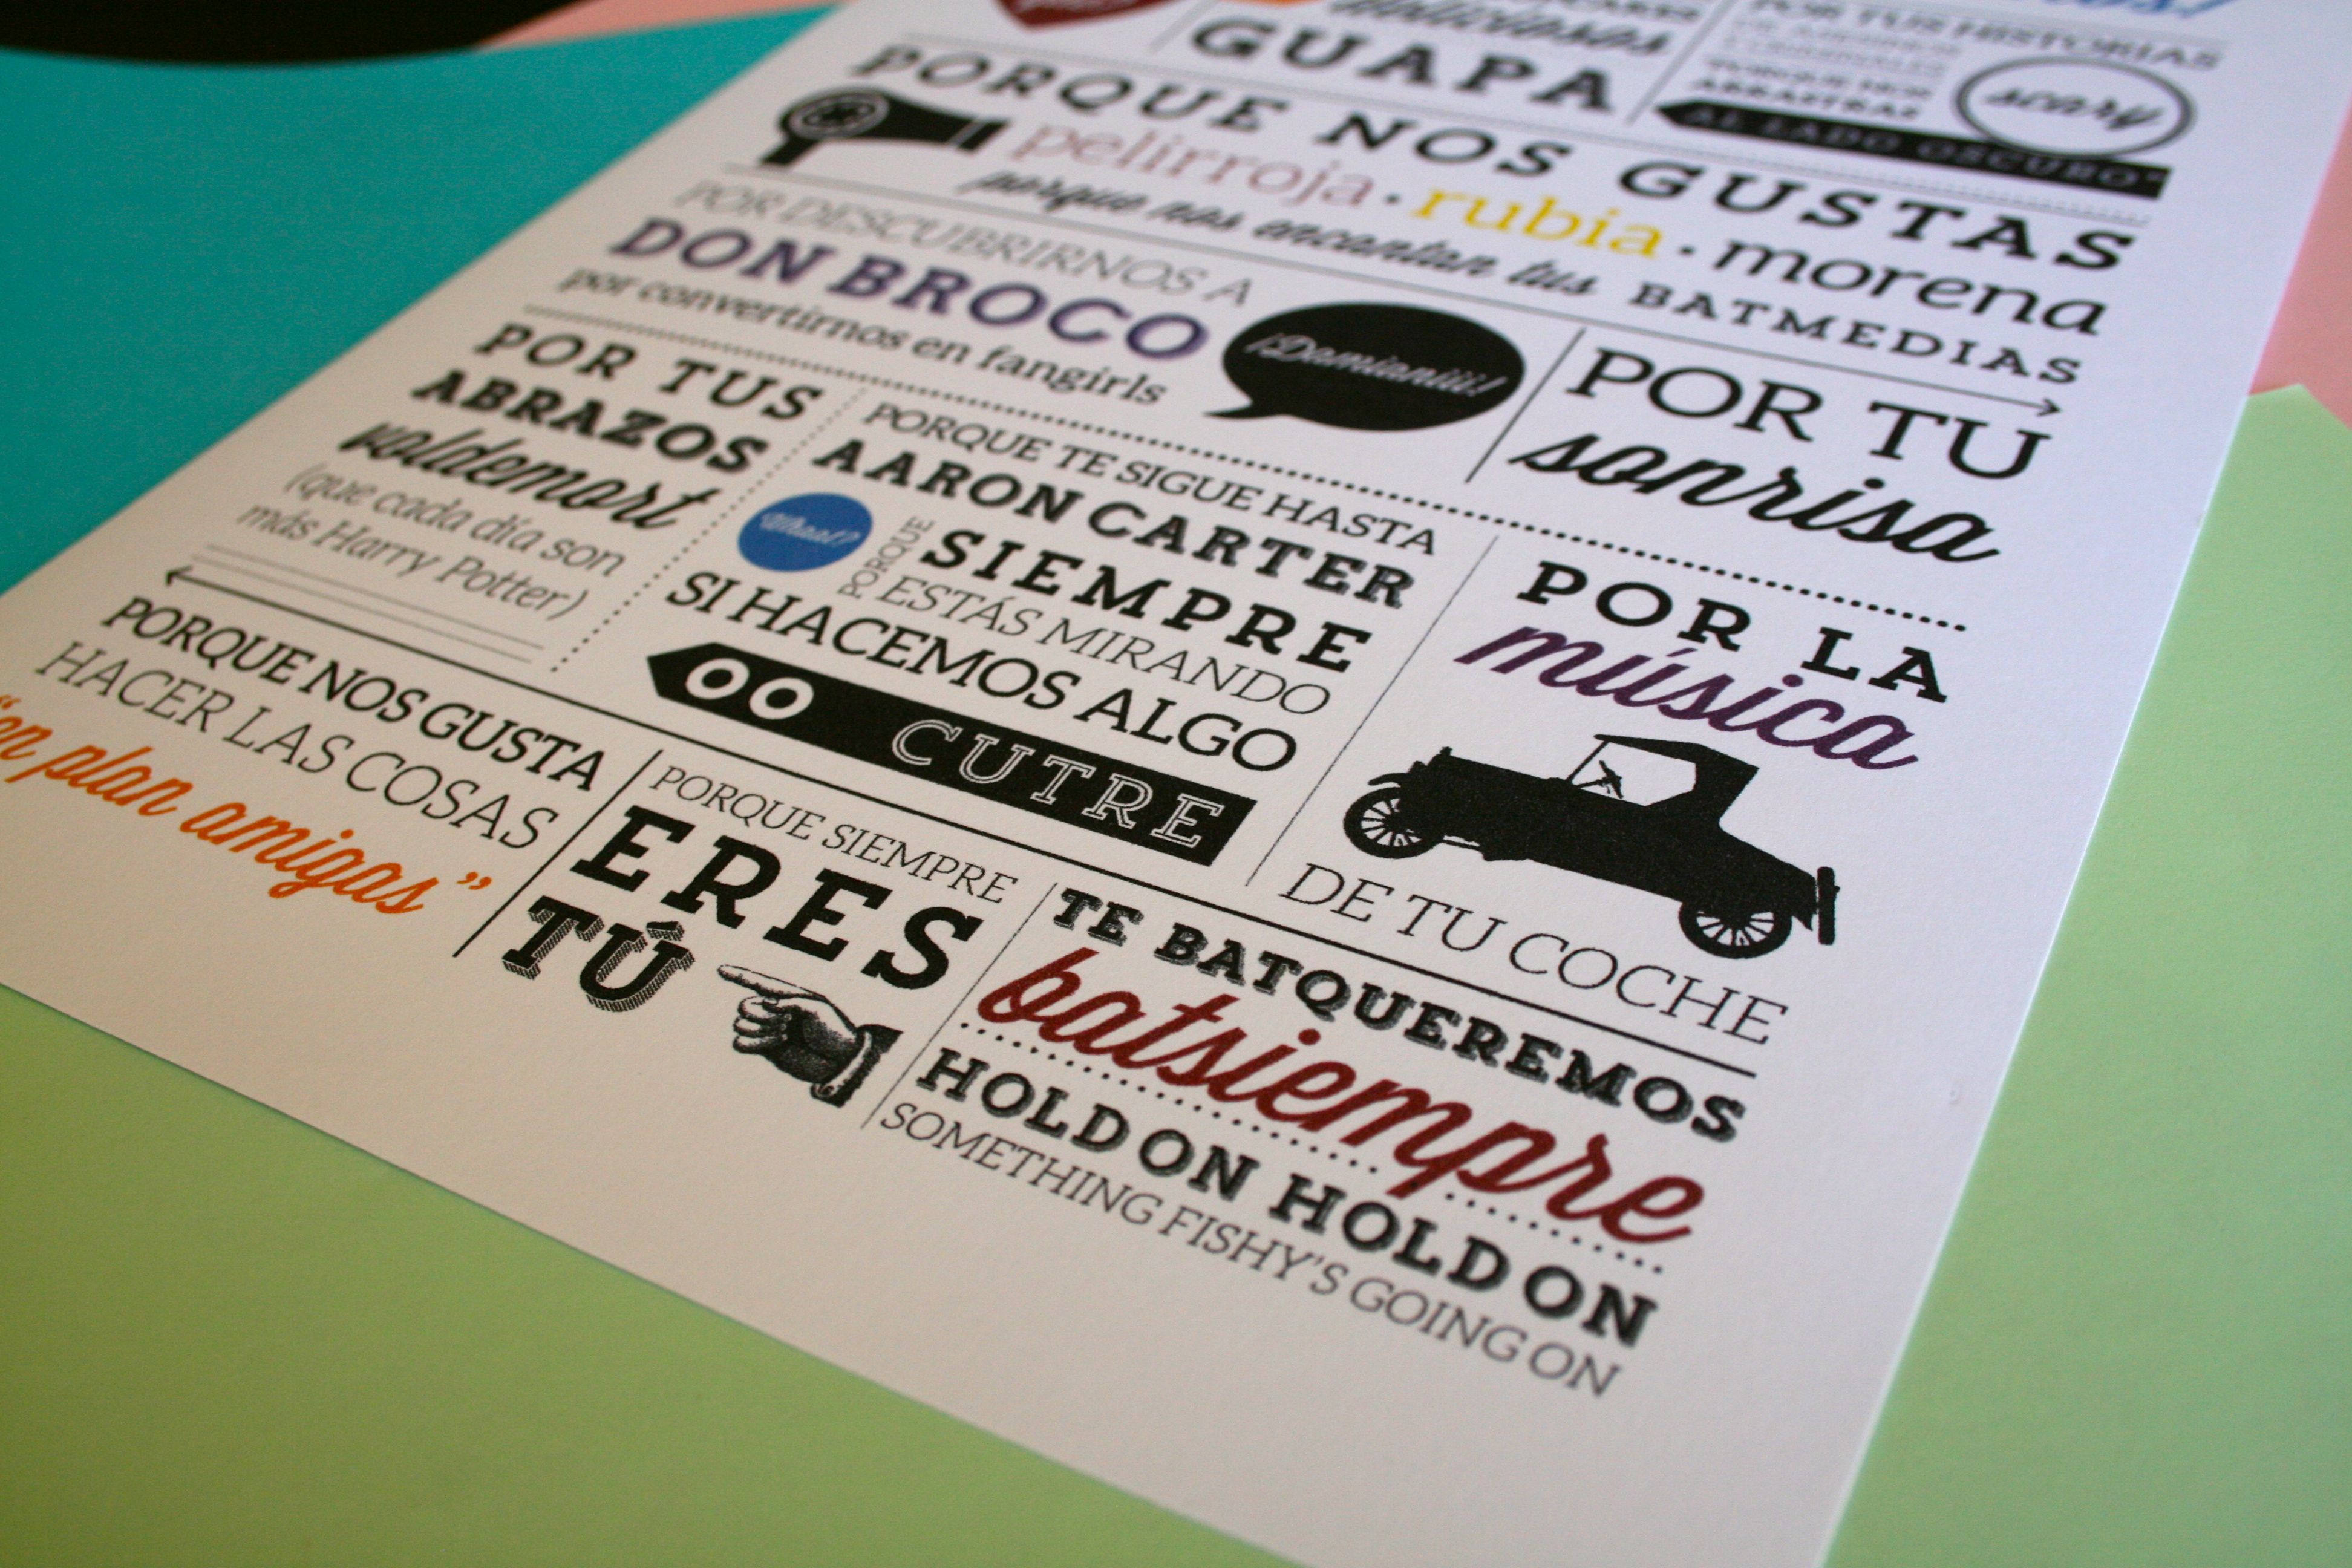 deliciosos
GUAPA
POR TUS HISTORIAS
PORQUE NOS
ARRASTRAS
scary
AL LADO OSCURO"
PORQUE NOS GUSTAS
pelirroja · rubia · morena
porque nos encantan tus BATMEDIAS
POR DESCUBRIRNOS A
DON BROCO
por convertirnos en fangirls
¡Damianiii!
POR TU
sonrisa
POR TUS
ABRAZOS
voldemort
(que cada día son
más Harry Potter)
PORQUE TE SIGUE HASTA
AARON CARTER
Whaat?
PORQUE
SIEMPRE
ESTÁS MIRANDO
SI HACEMOS ALGO
CUTRE
POR LA
música
DE TU COCHE
PORQUE NOS GUSTA
HACER LAS COSAS
"en plan amigas"
PORQUE SIEMPRE
ERES
TÚ
TE BATQUEREMOS
batsiempre
HOLD ON HOLD ON
SOMETHING FISHY'S GOING ON